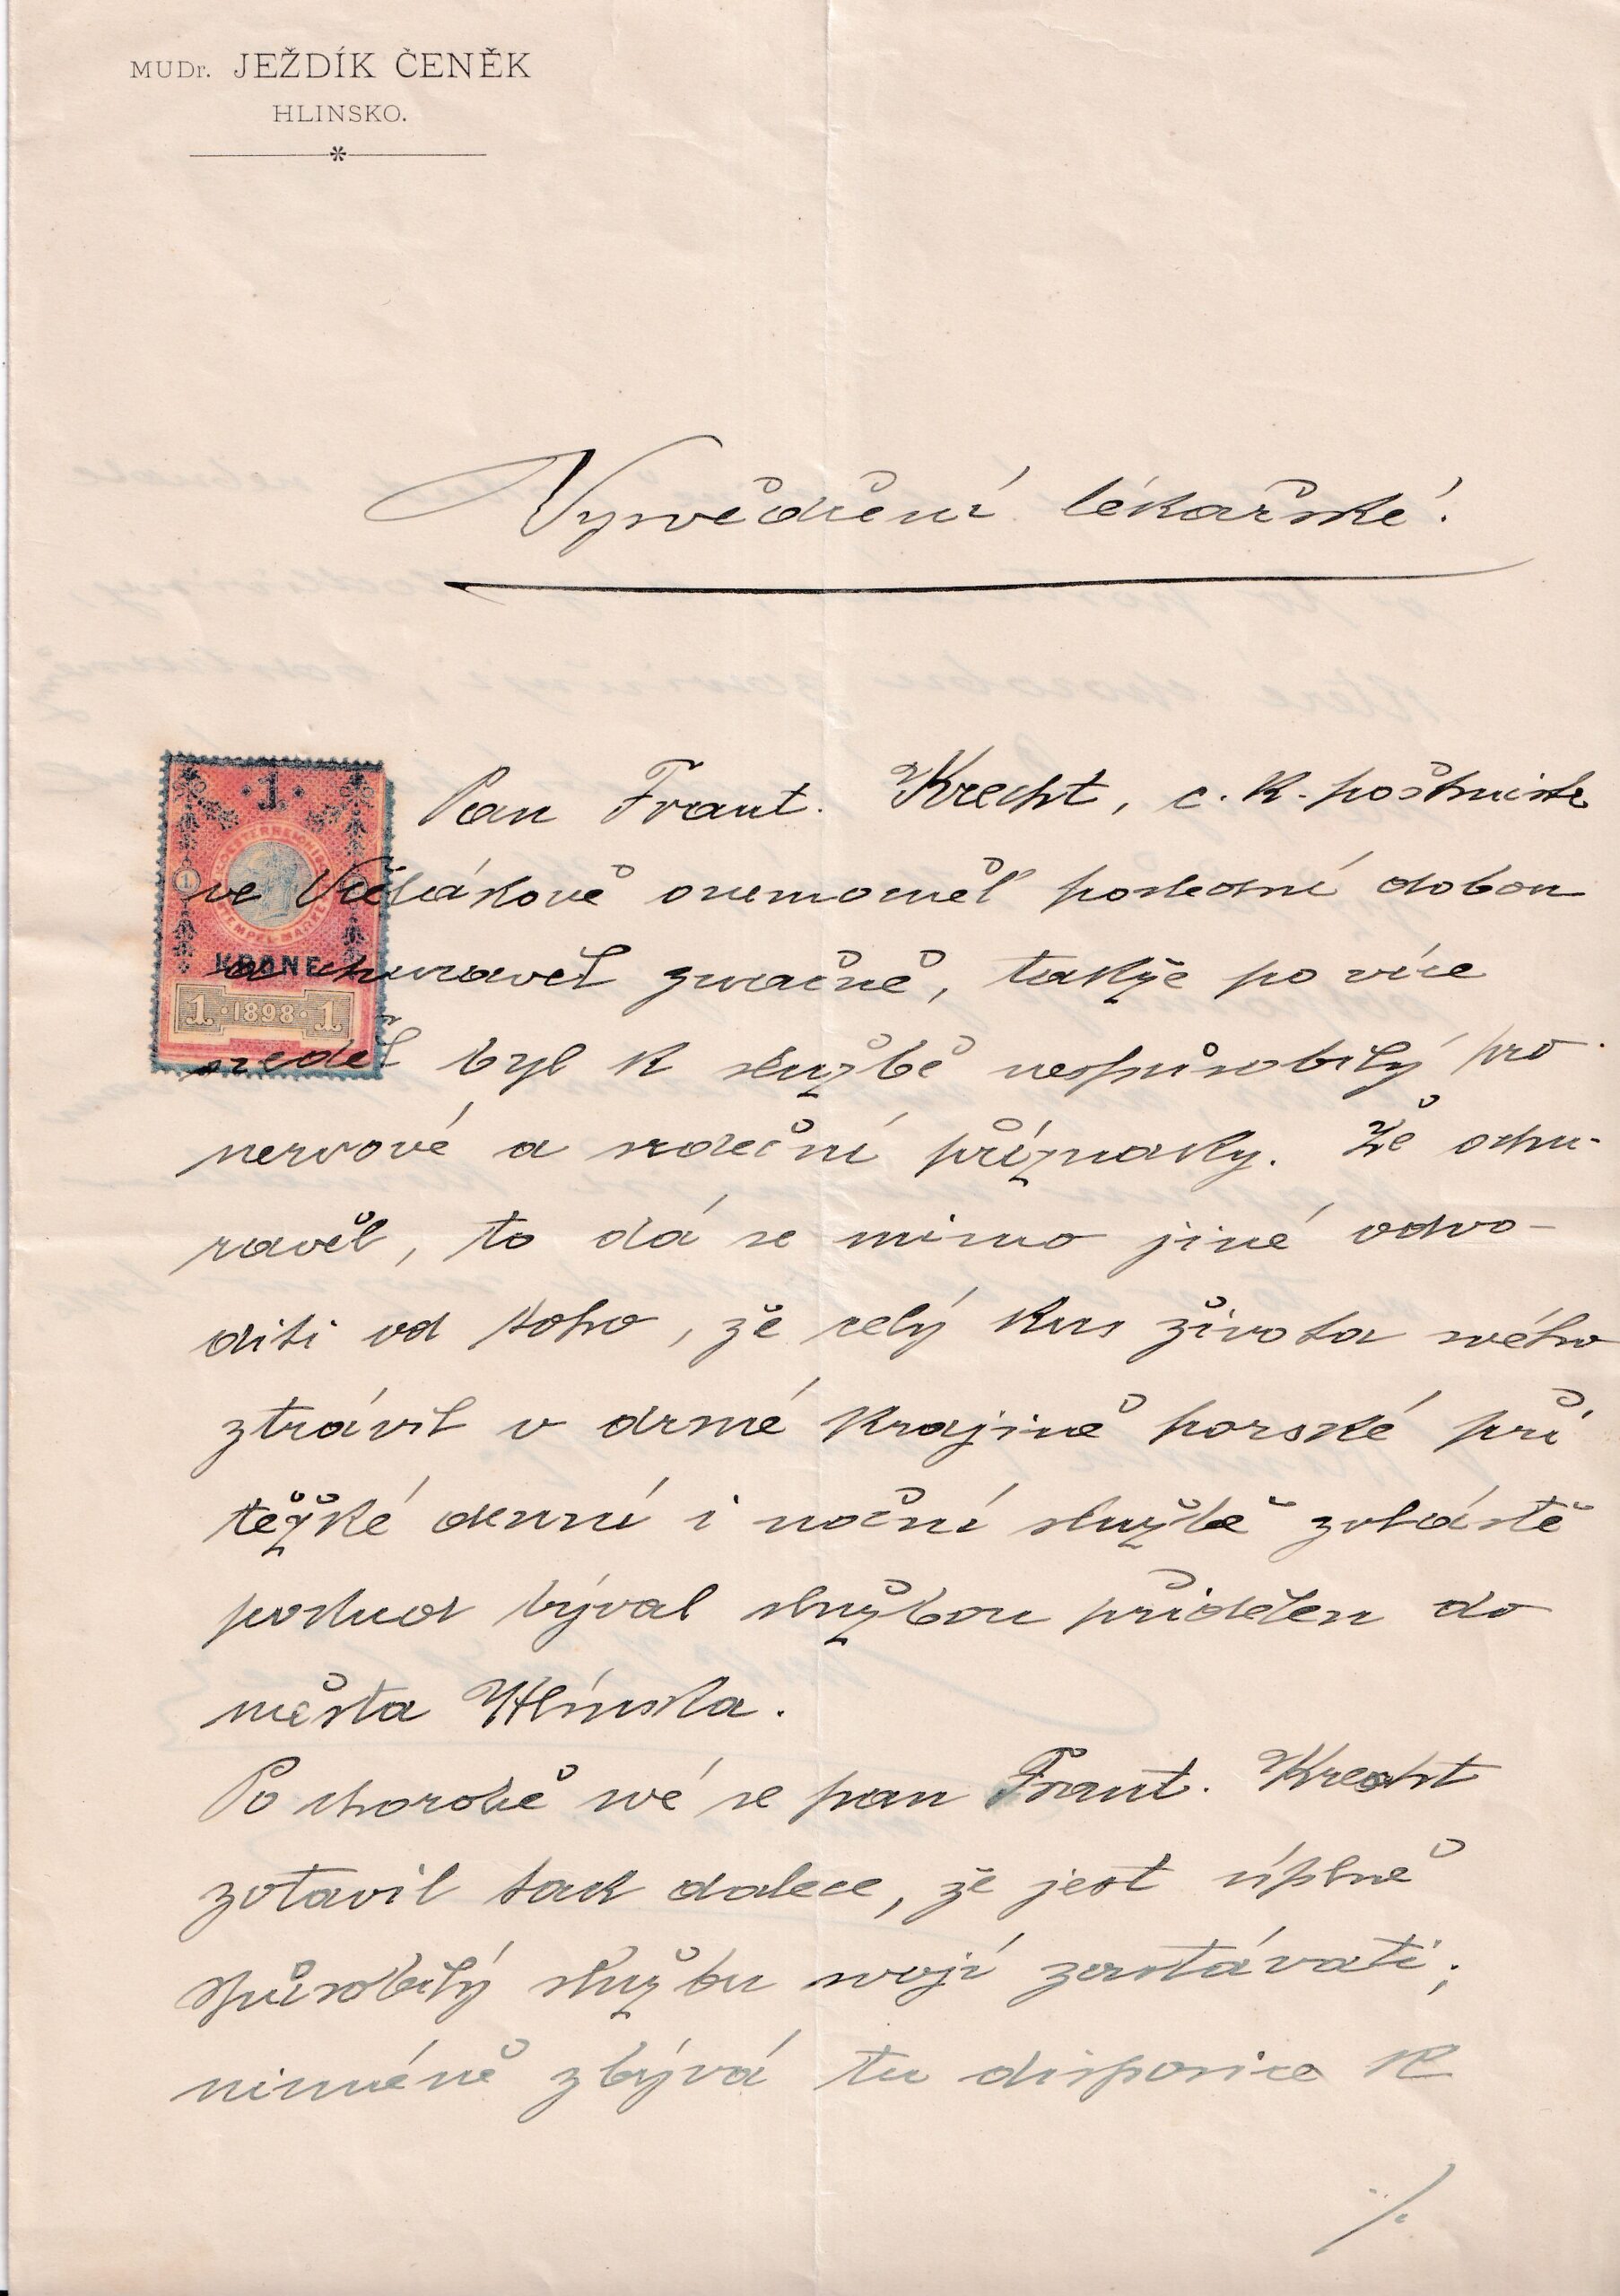 MUDr. JEŽDÍK ČENĚK
HLINSKO.
Vysvědčení lékařské.
Pan Frant. Krecht, c. k. poštmistr
ve Vítanově onemocněl poslední dobou
a churavěl značně, takže po více
neděl byl k službě nespůsobilý pro
nervové a srdeční příznaky. Že ochu-
ravěl, to dá se mimo jiné odvo-
diti od toho, že celý kus života svého
ztrávil v drsné krajině horské při
těžké denní i noční službě zvláště
pokud býval službou přidělen do
města Hlinska.
Po chorobě své se pan Frant. Krecht
zotavil tak dalece, že jest úplně
spůsobilý službu svoji zastávati;
nicméně zbývá tu disposice k
./.
1
KRONE
1 · 1898 · 1